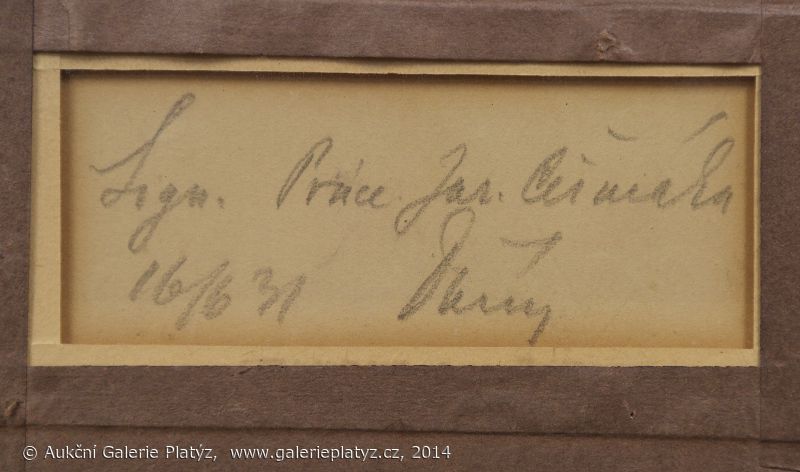 Sign. Práce Jar. Čermáka
16/6 31
© Aukční Galerie Platýz, www.galerieplatyz.cz, 2014